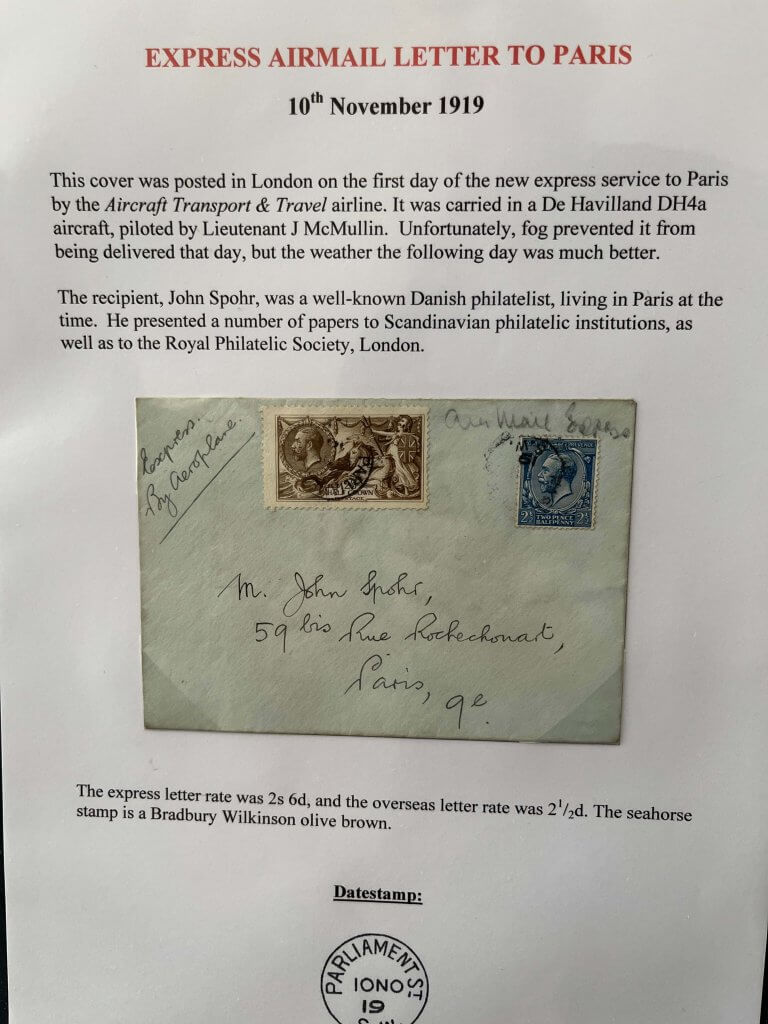 EXPRESS AIRMAIL LETTER TO PARIS
10th November 1919
This cover was posted in London on the first day of the new express service to Paris
by the Aircraft Transport & Travel airline. It was carried in a De Havilland DH4a
aircraft, piloted by Lieutenant J McMullin. Unfortunately, fog prevented it from
being delivered that day, but the weather the following day was much better.
The recipient, John Spohr, was a well-known Danish philatelist, living in Paris at the
time. He presented a number of papers to Scandinavian philatelic institutions, as
well as to the Royal Philatelic Society, London.
Express.
By Aeroplane.
Air Mail Express
HALF CROWN
2½ TWO PENCE 2½
HALFPENNY
M. John Spohr,
59 bis Rue Rochechouart,
Paris, 9e.
The express letter rate was 2s 6d, and the overseas letter rate was 2 1/2d. The seahorse
stamp is a Bradbury Wilkinson olive brown.
Datestamp:
PARLIAMENT ST.
10 NO
19